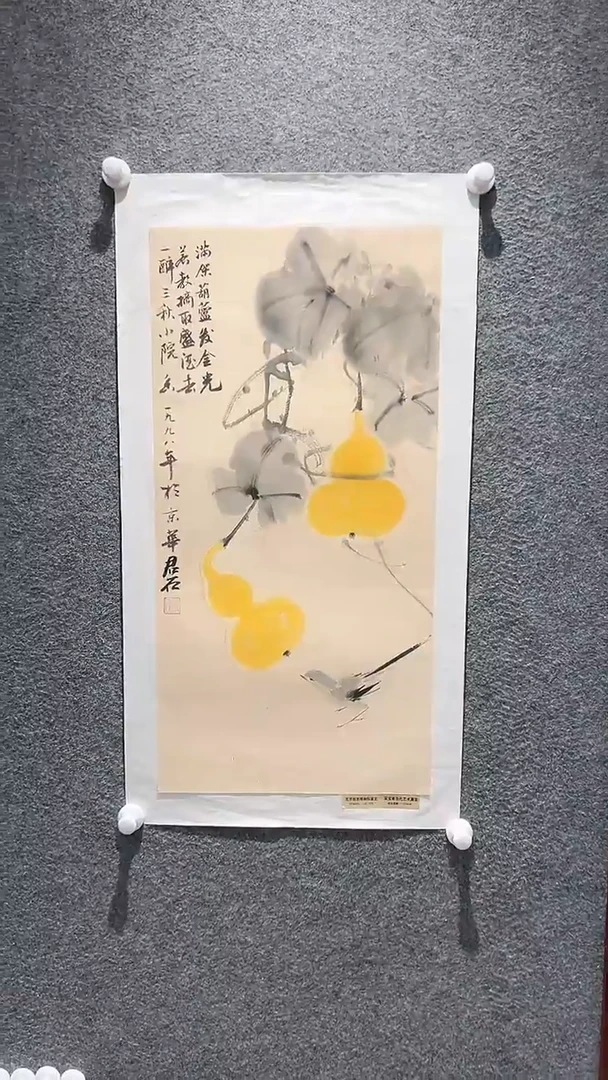 滿架葫蘆发金光
若教摘取盛酒去
一醉三秋小院香 一九九八年於京華君石